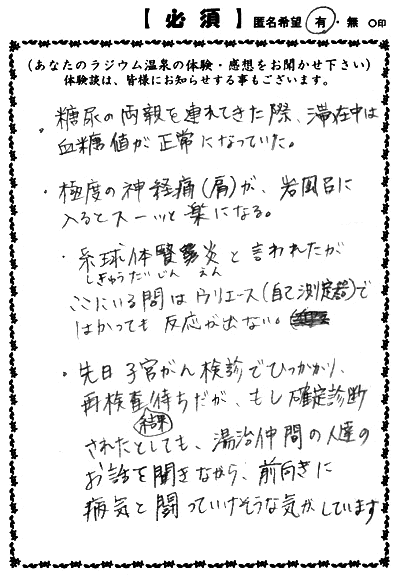 【必須】 匿名希望 有・無 ○印
(あなたのラジウム温泉の体験・感想をお聞かせ下さい)
体験談は、皆様にお知らせする事もございます。
・糖尿の両親を連れてきた際、滞在中は
血糖値が正常になっていた。
・極度の神経痛(肩)が、岩風呂に
入るとスーッと楽になる。
・糸球体腎炎と言われたが
しきゅうたいじん えん
ここにいる間はウリエース(自己測定器)で
はかっても反応が出ない。
・先日子宮がん検診でひっかかり、
再検査結果待ちだが、もし確定診断
されたとしても、湯治仲間の人達の
お話を聞きながら、前向きに
病気と闘っていけそうな気がしています